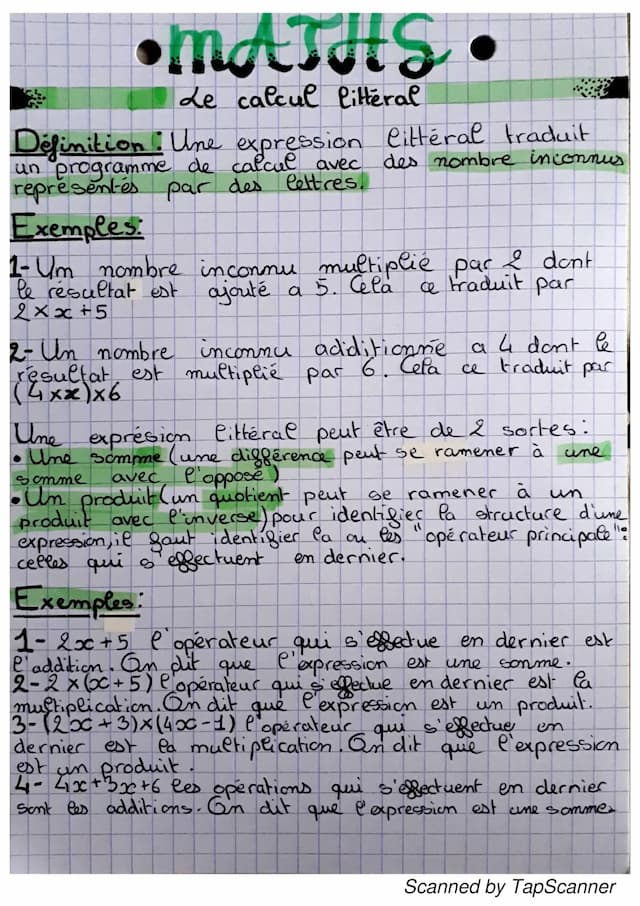 MATHS
Le calcul littéral
Définition: Une expression littéral traduit
un programme de calcul avec des nombre inconnus
représentés par des lettres.
Exemples:
1- Un nombre inconnu multiplié par 2 dont
le résultat est ajouté a 5. Cela ce traduit par
2 × x + 5
2- Un nombre inconnu adiditionnie a 4 dont le
résultat est multiplié par 6. Cela ce traduit par
(4 × x) × 6
Une exprésion littéral peut être de 2 sortes:
• Une somme (une différence peut se ramener à une
somme avec l'opposé)
• Un produit (un quotient peut se ramener à un
produit avec l'inverse) pour identifier la structure d'une
expression, il faut identifier la ou les "opérateur principale":
celles qui s'effectuent en dernier.
Exemples:
1- 2x+5 l'opérateur qui s'effectue en dernier est
l'addition. On dit que l'expression est une somme.
2- 2 × (x + 5) l'opérateur qui s'effectue en dernier est la
multiplication. On dit que l'expression est un produit.
3- (2x + 3) × (4x - 1) l'opérateur qui s'effectue en
dernier est la multiplication. On dit que l'expression
est un produit.
4- 4x + 3x + 6 les opérations qui s'effectuent en dernier
sont les additions. On dit que l'expression est une somme.
Scanned by TapScanner